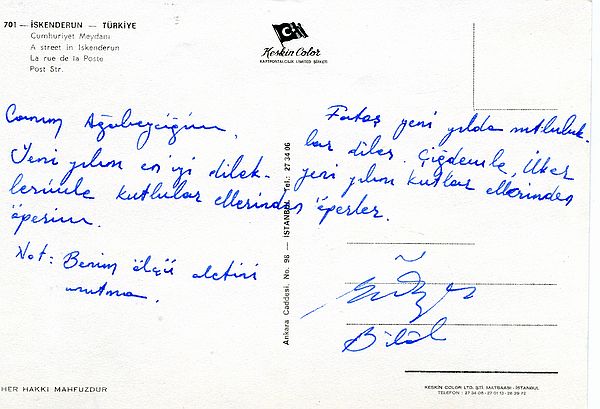 701 — İSKENDERUN — TÜRKİYE
Cumhuriyet Meydanı
A street in Iskenderun
La rue de la Poste
Post Str.
Keskin Color
KARTPOSTALCILIK LİMİTED ŞİRKETİ
Canım Ağabeyciğim,
Yeni yılını en iyi dilek-
lerimle kutlular ellerinden
öperim.
Not: Benim ölçü aletini
unutma.
Fatoş yeni yılda mutluluk-
lar diler. Çiğdemle, İlker
yeni yılını kutlar ellerinden
öperler.
Bilâl
Ankara Caddesi, No. 98 — İSTANBUL Tel.: 27 34 06
HER HAKKI MAHFUZDUR
KESKİN COLOR LTD. ŞTİ. MATBAASI - İSTANBUL
TELEFON : 27 34 06 - 27 01 13 - 26 29 72